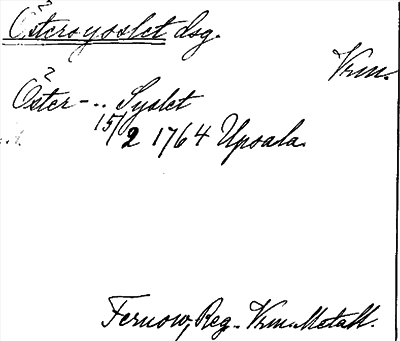 Östersysslet dsg.
Vrm.
Öster-.. Syslet
15/2 1764 Upsala.
Fernow, Reg. Vrm. Metall.